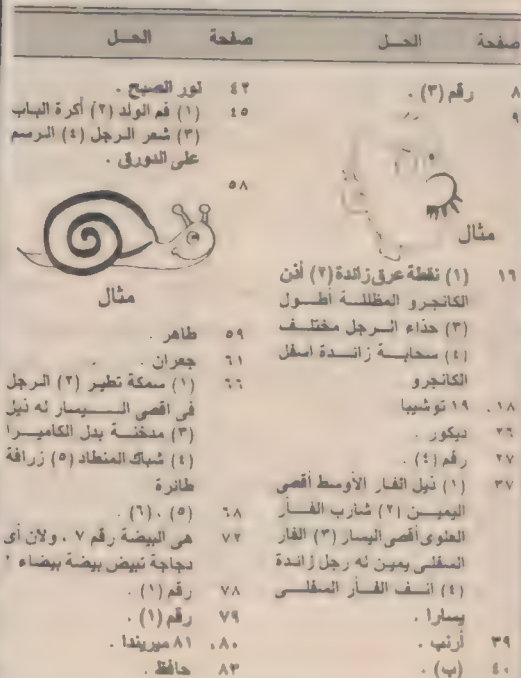 صفحة الحل
٨ رقم (٣) .
٩
مثال
١٦ (١) نقطة عرق زائدة (٢) أذن
الكانجرو المظللة أطول
(٣) حذاء الرجل مختلف
(٤) سحابة زائدة اسفل
الكانجرو
١٨ . ١٩ توشيبا
٢٦ ديكور .
٢٧ رقم (٤) .
٣٧ (١) ذيل الفار الأوسط أقصى
اليمين (٢) شارب الفأر
العلوى أقصى اليسار (٣) الفار
السفلى يمين له رجل زائدة
(٤) انف الفأر السفلى
يسارا .
٣٩ أرنب .
٤٠ (ب) .
صفحة الحل
٤٢ نور الصبح .
٤٥ (١) فم الولد (٢) أكرة الباب
(٣) شعر الرجل (٤) الرسم
على الدورق .
٥٨
مثال
٥٩ طاهر .
٦١ جعران .
٦٦ (١) سمكة تطير (٢) الرجل
فى اقصى اليسار له ذيل
(٣) مدخنة بدل الكاميرا
(٤) شباك المنطاد (٥) زرافة
طائرة
٦٨ (٥) ، (٦) .
٧٢ هى البيضة رقم ٧ ، ولان أى
دجاجة تبيض بيضة بيضاء !
٧٨ رقم (١) .
٧٩ رقم (١) .
٨٠ ، ٨١ ميريندا .
٨٣ حافظ .